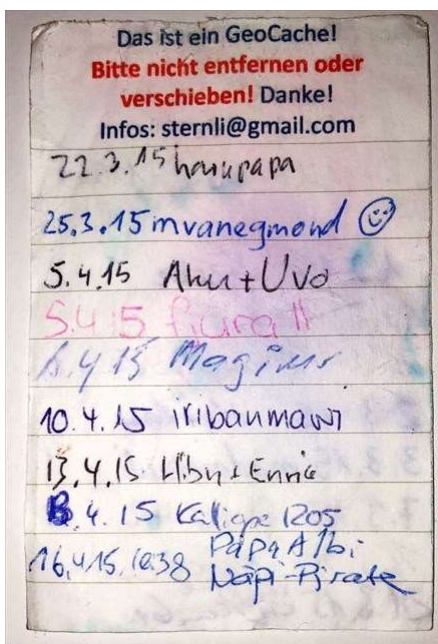 Das ist ein GeoCache!
Bitte nicht entfernen oder
verschieben! Danke!
Infos: sternli@gmail.com
22.3.15 hanupapa
25.3.15 mvanegmond
5.4.15 Ahu + Uvo
5.4.15
4 15 Magimr
10.4.15 iribanmawi
13.4.15 + Ennie
13.4.15 Kaliope 1205
16.4.15, 10.38 Papa Albi
Näpi-Pirate